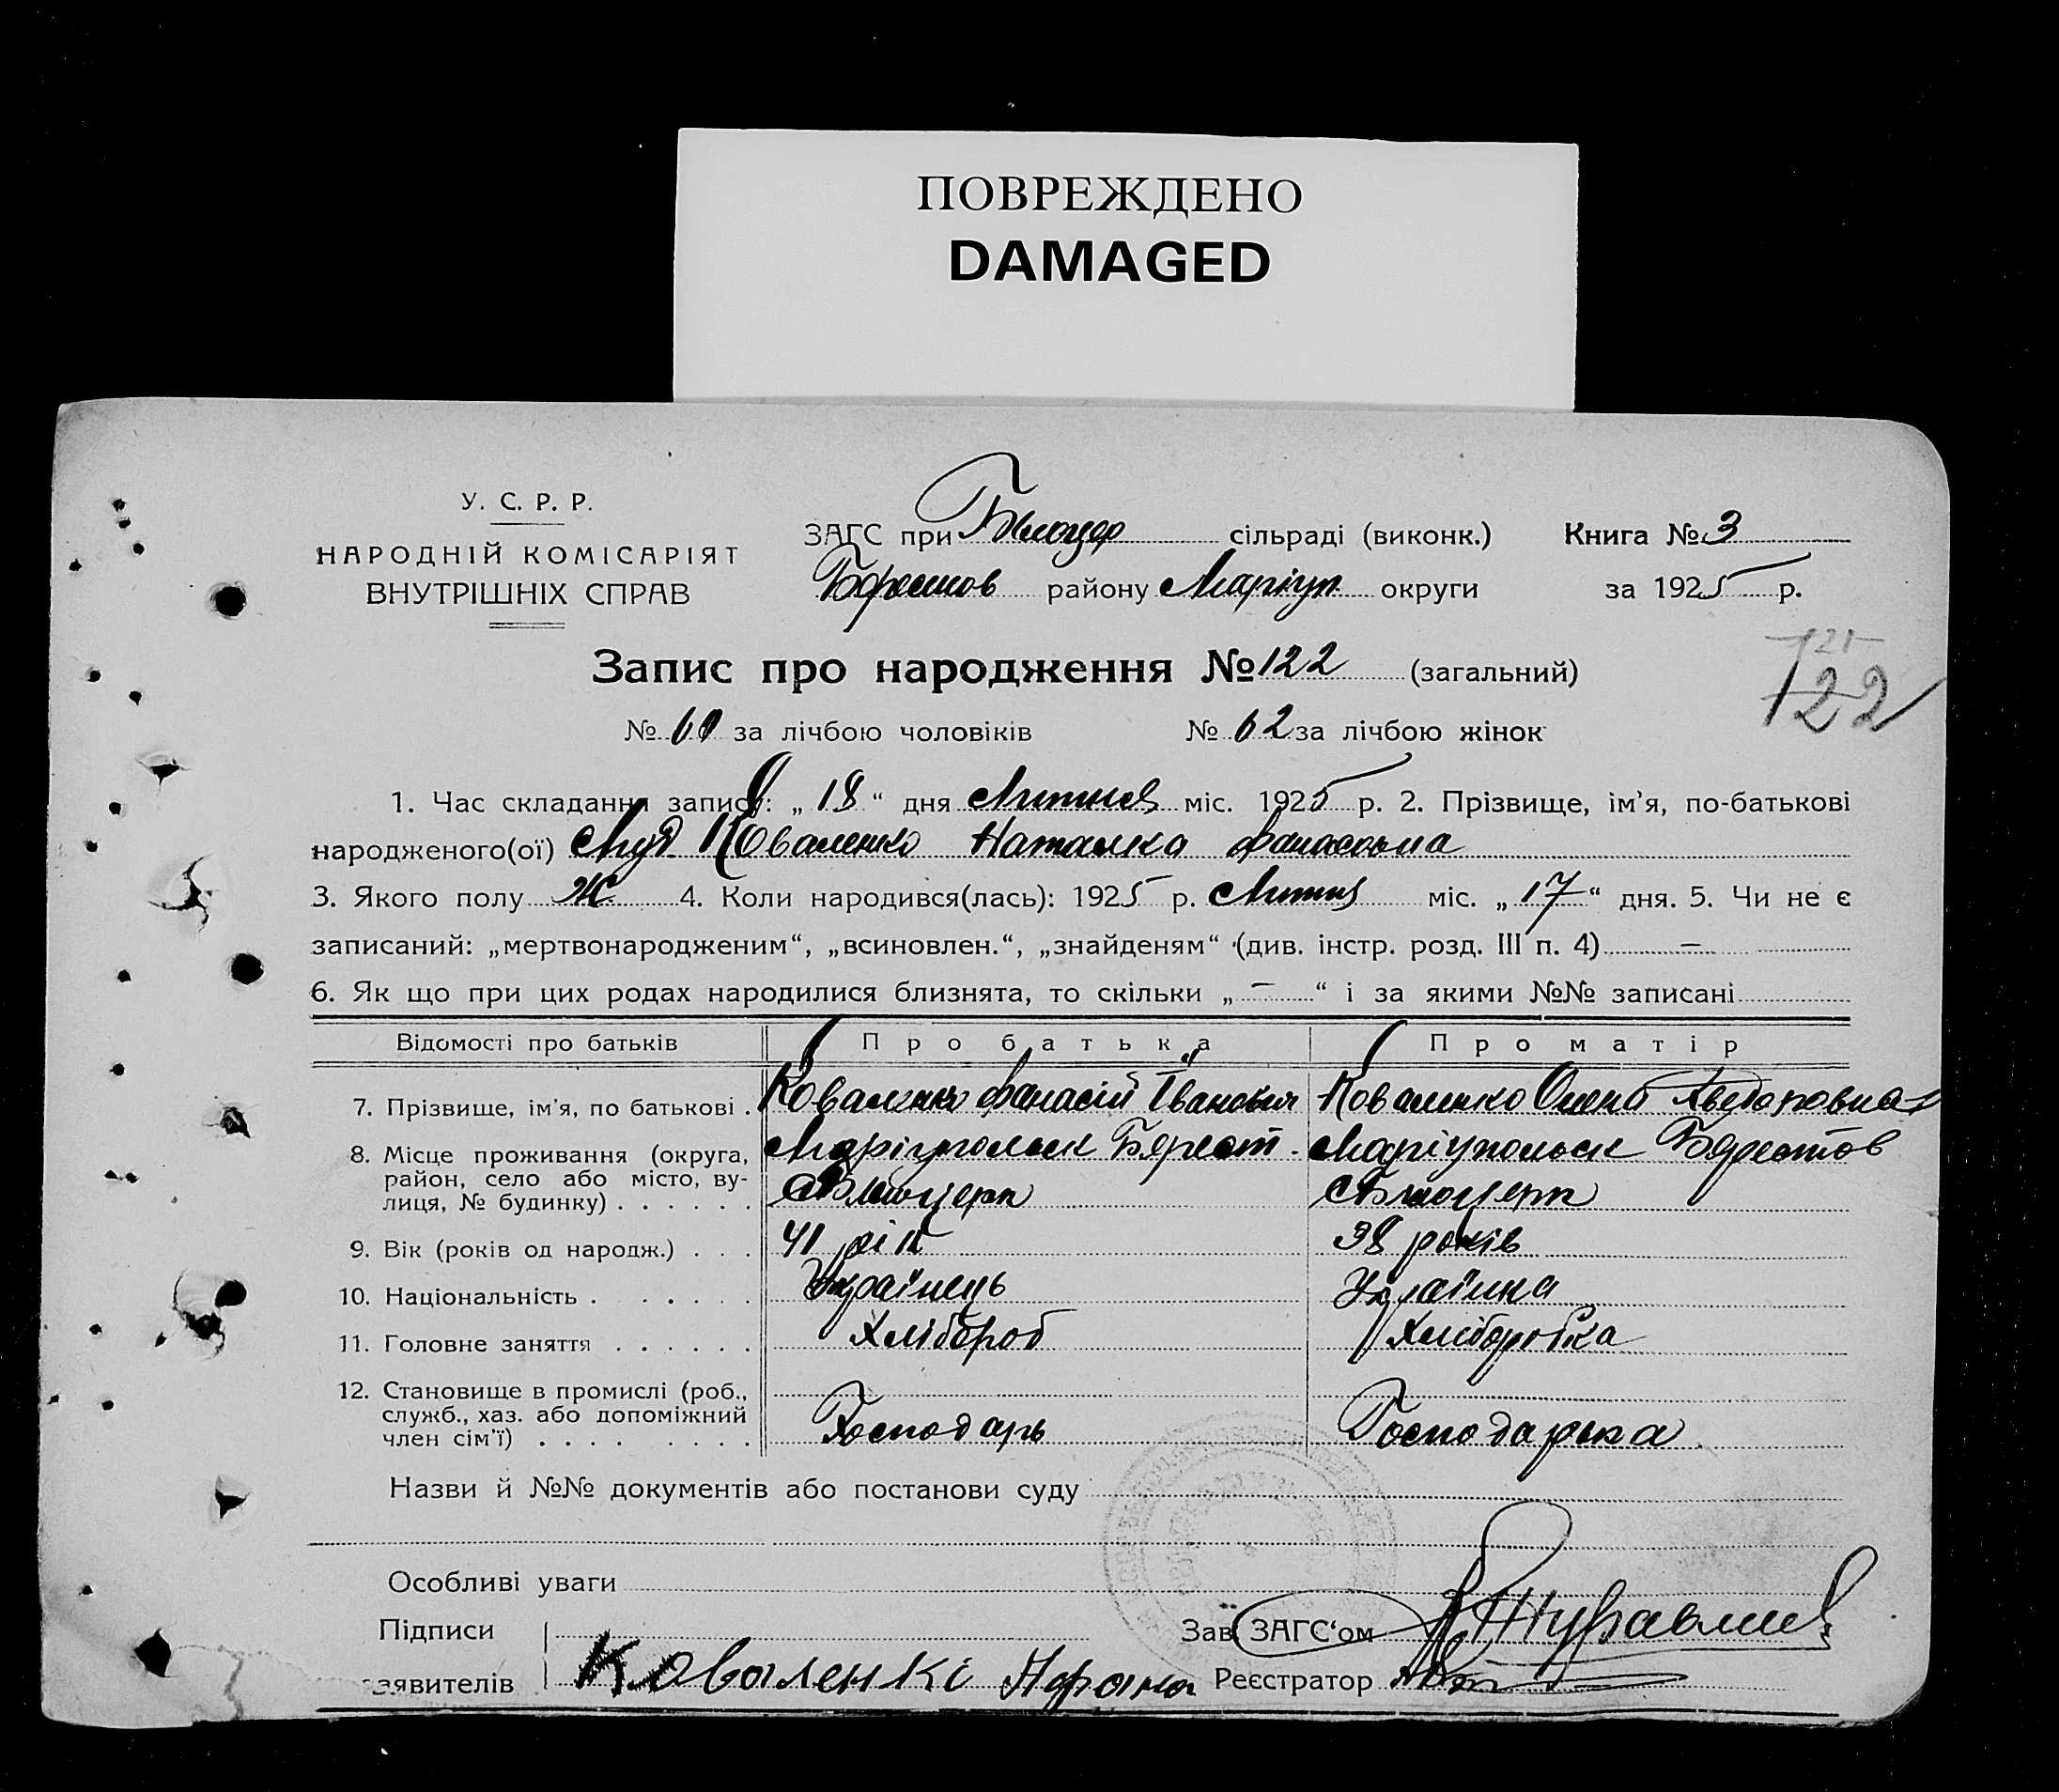 ПОВРЕЖДЕНО
DAMAGED
У. С. Р. Р.
НАРОДНІЙ КОМІСАРІЯТ
ВНУТРІШНІХ СПРАВ
ЗАГС при Білоцер сільраді (виконк.) Книга № 3
Берестов району Маріуп. округи за 1925 р.
Запис про народження № 122 (загальний)
122
№ 60 за лічбою чоловіків № 62 за лічбою жінок
1. Час складання запису: „ 18 “ дня Липня міс. 1925 р. 2. Прізвище, ім’я, по-батькові
народженого(ої) Коваленко Наталка Фанасовна
3. Якого полу Ж. 4. Коли народився(лась): 1925 р. Липня міс. „ 17 “ дня. 5. Чи не є
записаний: „мертвонародженим“, „всиновлен.“, „знайденям“ (див. інстр. розд. III п. 4) —
6. Як що при цих родах народилися близнята, то скільки „ — “ і за якими №№ записані
Відомості про батьків Про батька Про матір
7. Прізвище, ім’я, по батькові . Коваленко Фанасій Іванович Коваленко Олена
8. Місце проживання (округа, Маріупольск Берест. Маріупольск Берестов
район, село або місто, ву-
лиця, № будинку) . . . . . . Білоцерк Білоцерк
9. Вік (років од народж.) . . . 41 рік 38 років
10. Національність . . . . . . Українець Українка
11. Головне заняття . . . . . . Хлібороб Хліборобка
12. Становище в промислі (роб.,
служб., хаз. або допоміжний
член сім’ї) . . . . . . . . Господарь Господарька
Назви й №№ документів або постанови суду
Особливі уваги
Підписи Зав. ЗАГС‘ом Журавлев
заявителів Коваленкі Реєстратор